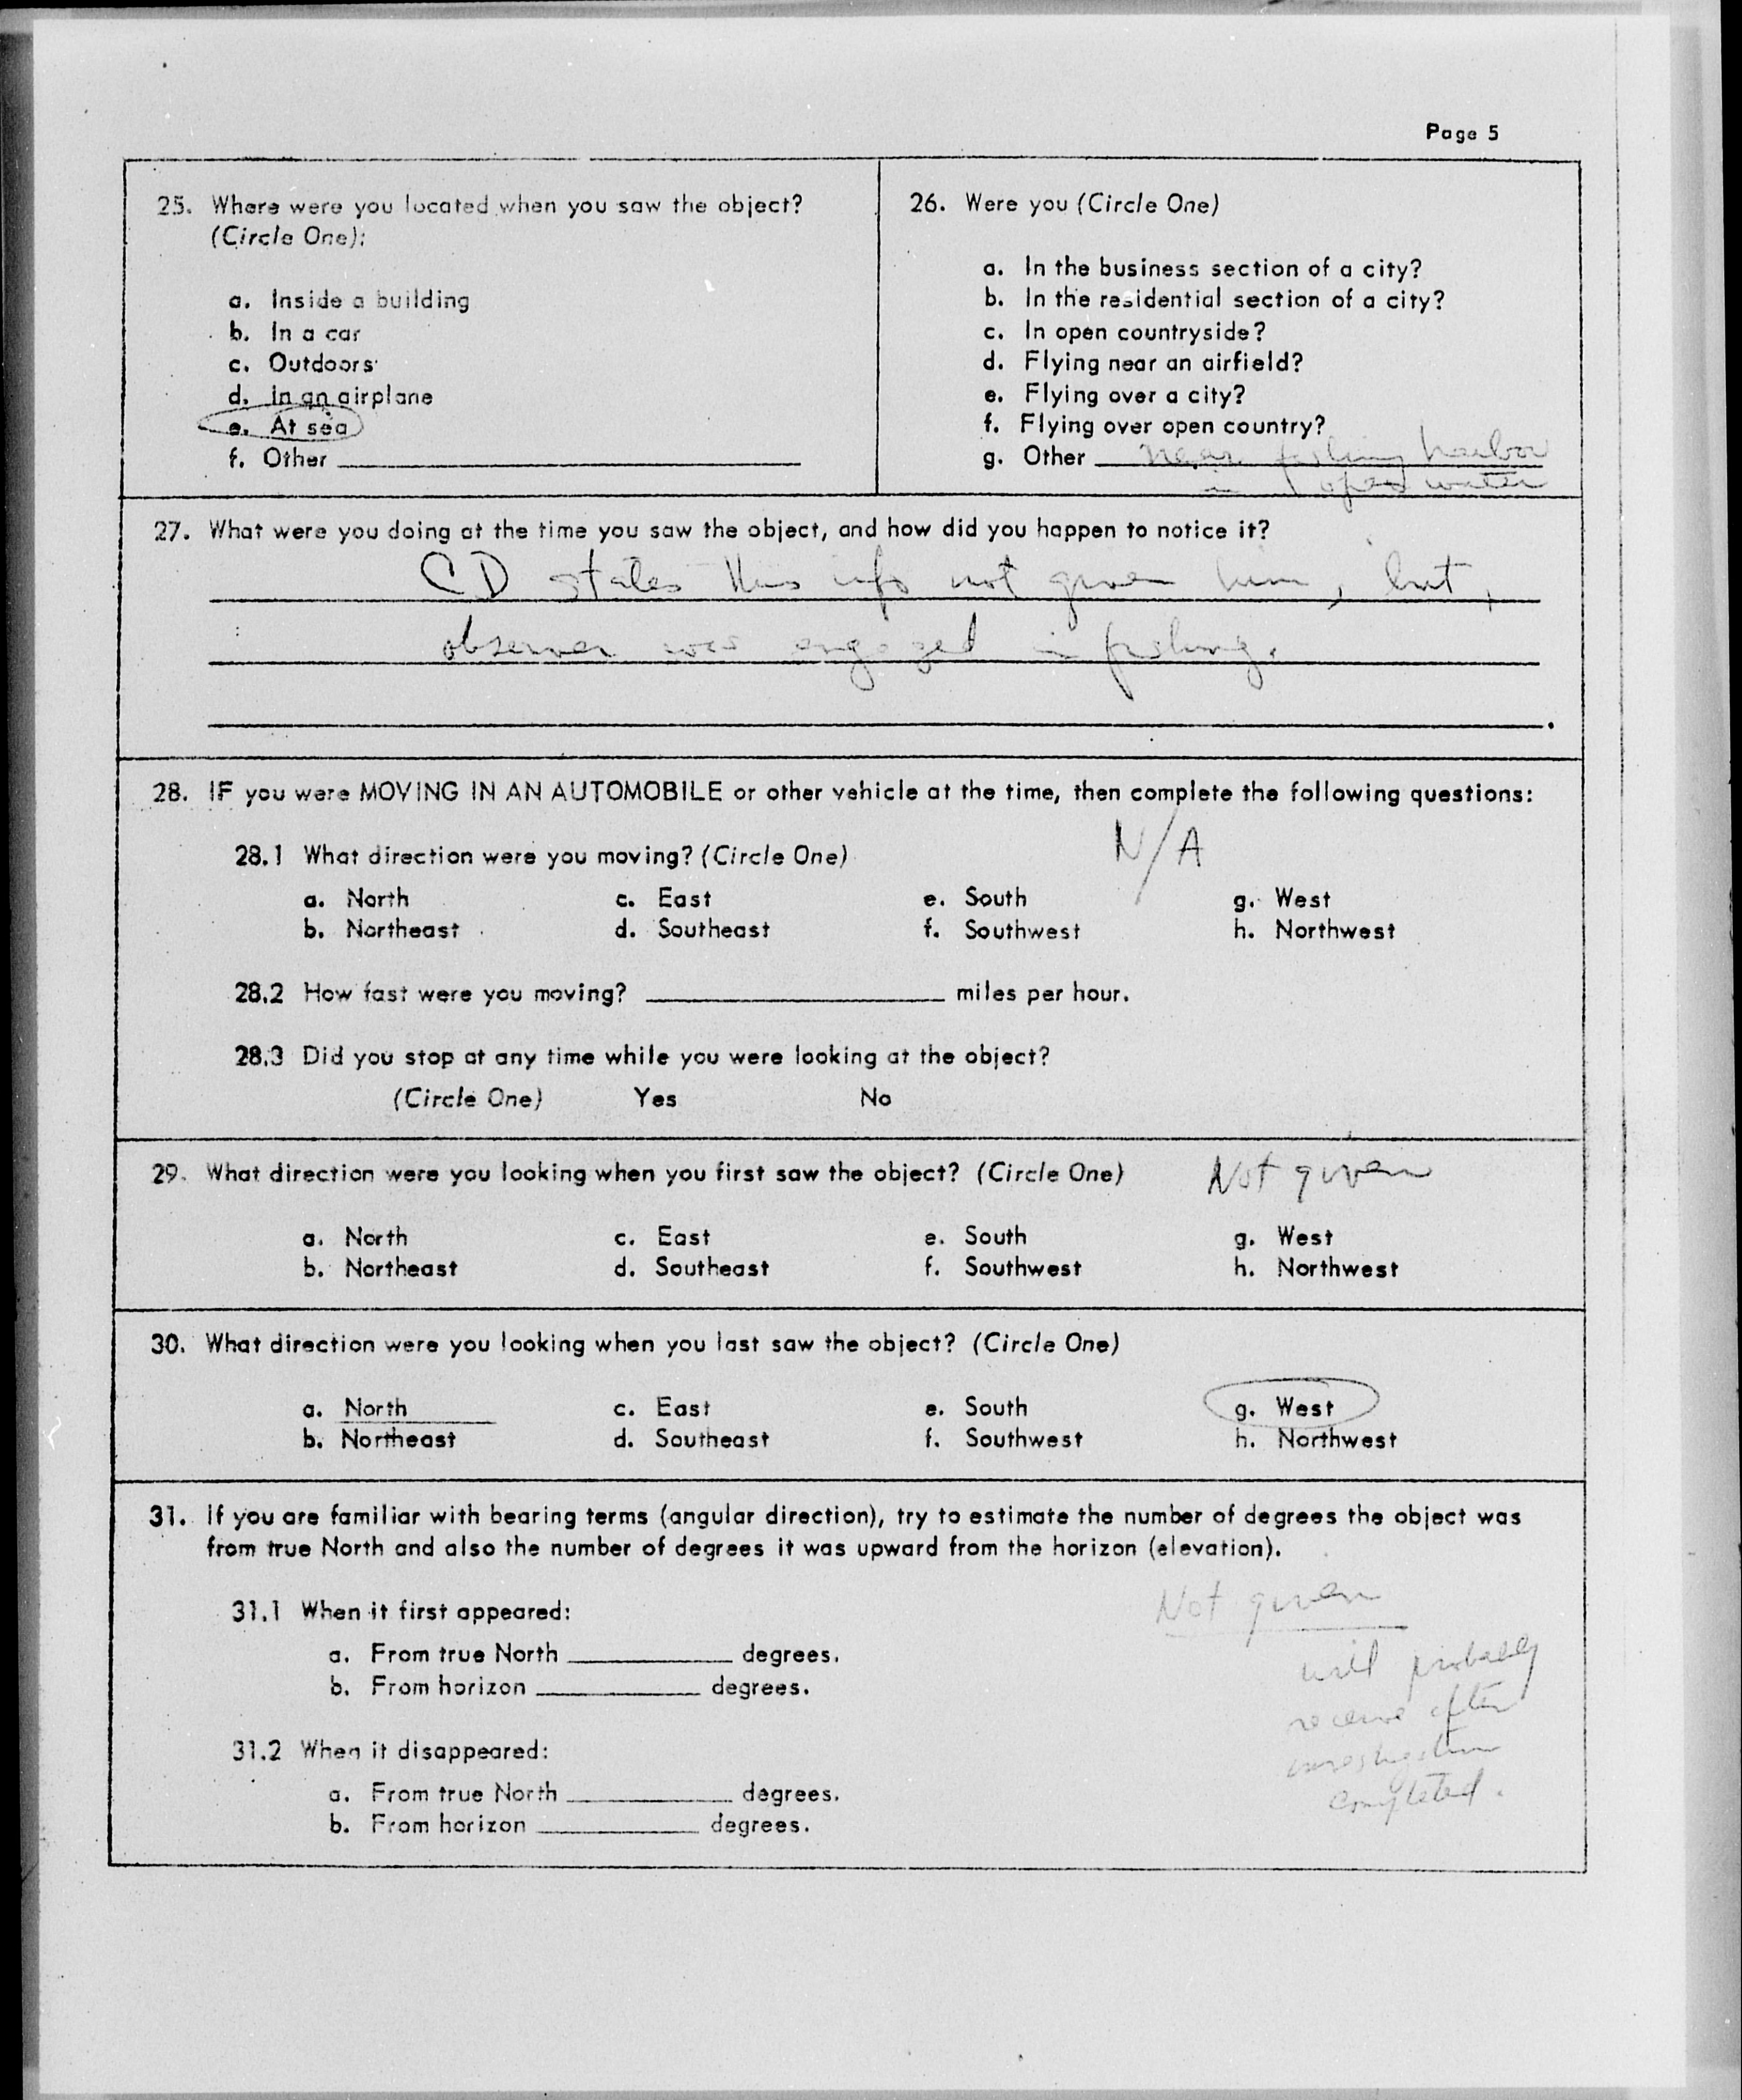 Page 5
25. Where were you located when you saw the object?
(Circle One):
a. Inside a building
b. In a car
c. Outdoors
d. In an airplane
e. At sea
f. Other
26. Were you (Circle One)
a. In the business section of a city?
b. In the residential section of a city?
c. In open countryside?
d. Flying near an airfield?
e. Flying over a city?
f. Flying over open country?
g. Other near fishing harbor
in open water
27. What were you doing at the time you saw the object, and how did you happen to notice it?
CD states this info not given him, but,
observer was engaged in fishing.
28. IF you were MOVING IN AN AUTOMOBILE or other vehicle at the time, then complete the following questions:
N/A
28.1 What direction were you moving? (Circle One)
a. North c. East e. South g. West
b. Northeast d. Southeast f. Southwest h. Northwest
28.2 How fast were you moving? miles per hour.
28.3 Did you stop at any time while you were looking at the object?
(Circle One) Yes No
29. What direction were you looking when you first saw the object? (Circle One) Not given
a. North c. East e. South g. West
b. Northeast d. Southeast f. Southwest h. Northwest
30. What direction were you looking when you last saw the object? (Circle One)
a. North c. East e. South g. West
b. Northeast d. Southeast f. Southwest h. Northwest
31. If you are familiar with bearing terms (angular direction), try to estimate the number of degrees the object was
from true North and also the number of degrees it was upward from the horizon (elevation).
Not given
31.1 When it first appeared:
a. From true North degrees.
b. From horizon degrees.
will probably
receive after
investigation
completed.
31.2 When it disappeared:
a. From true North degrees.
b. From horizon degrees.